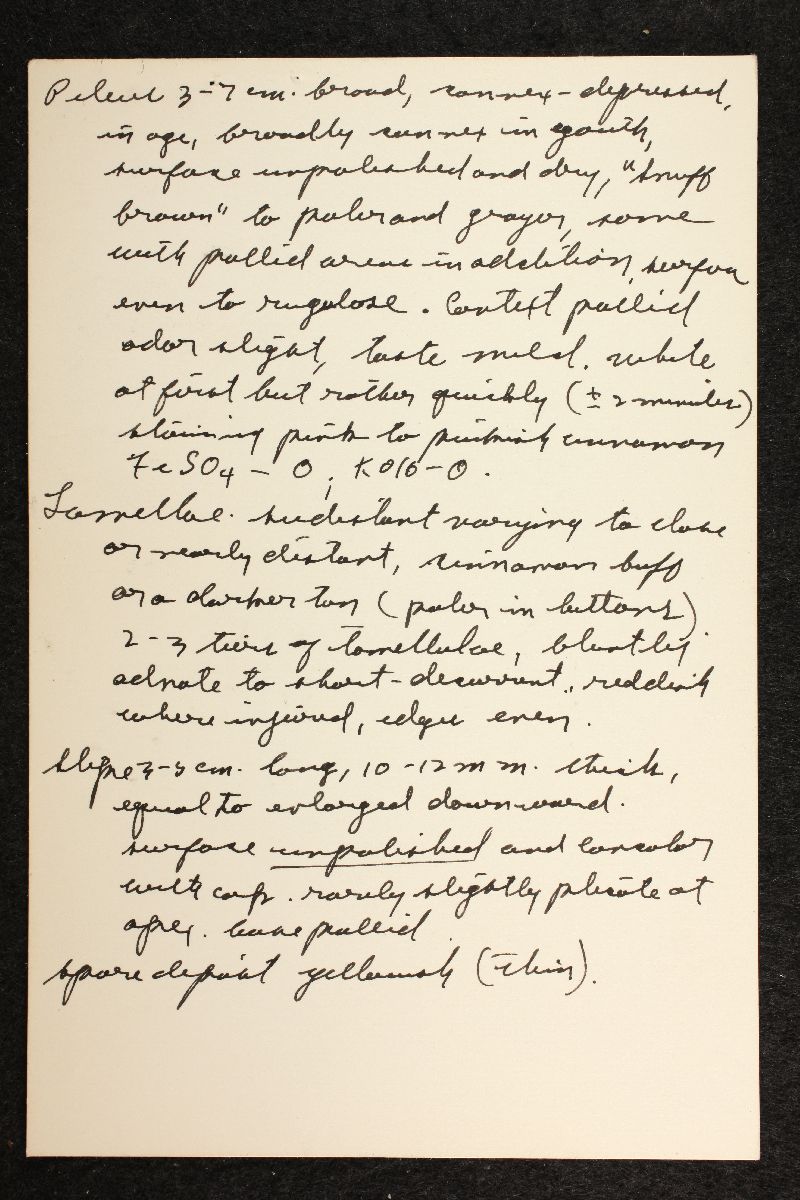 Pileus 3-7 cm. broad, convex-depressed,
in age, broadly convex in youth,
surface unpolished and dry, "snuff
brown" to paler and grayer, some
with pallid areas in addition, surface
even to rugulose. Context pallid
odor slight, taste mild. white
at first but rather quickly (± 2 minutes)
staining pink to pinkish cinnamon
FeSO4 - O; KOH - O.
Lamellae. subdistant varying to close
or nearly distant, cinnamon buff
or a darker tan (paler in buttons)
2-3 tiers of lamellulae, bluntly
adnate to short-decurrent, reddish
where injured, edges even.
Stipe 3-5 cm. long, 10-12 mm. thick,
equal to enlarged downward.
surface unpolished and concolor
with cap. rarely slightly plicate at
apex. base pallid.
spore deposit yellowish (thin).